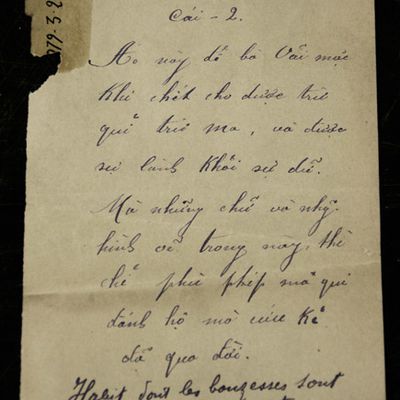 979-3-2
Cái - 2.
Áo này để bà Vãi mặc
Khi chết cho được trừ
quỉ trừ ma, và được
sự lành khỏi sự dữ.
Mà những chữ và nhg̃
hình vẽ trong này, thì
chỉ phù phép mà quỉ
đánh hộ mà cứu Kẻ
đã qua đời.
Habit dont les bonzesses sont